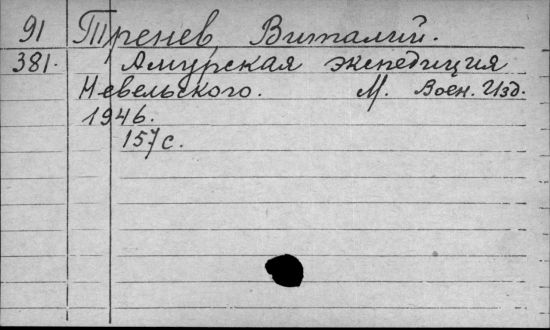 91 Тренев Виталий.
381. Амурская экспедиция
Невельского. М. Воен. Изд.
1946.
157с.